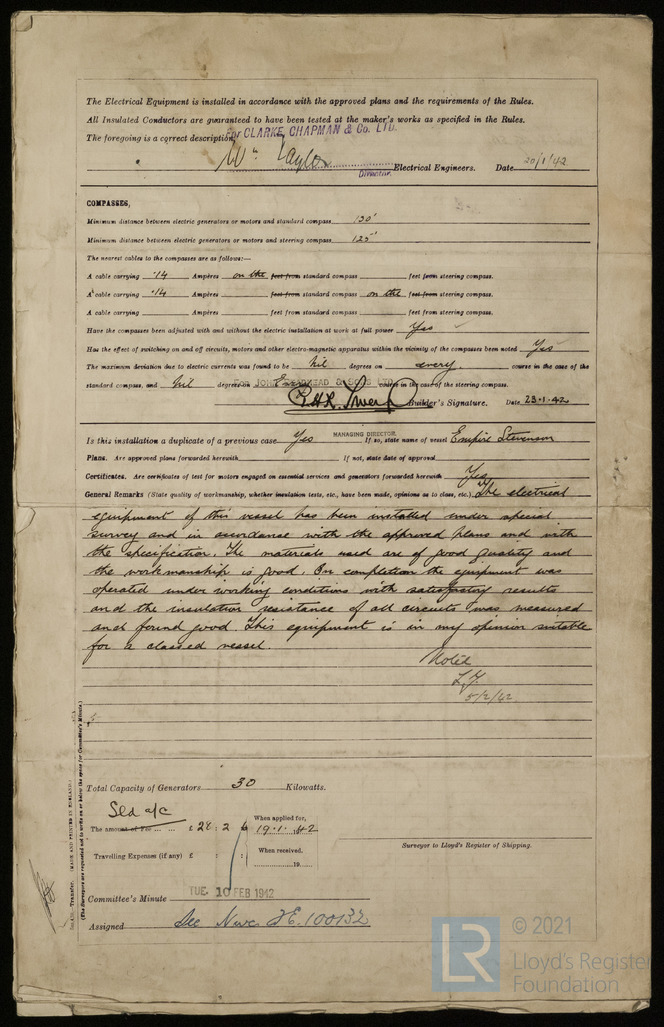 The Electrical Equipment is installed in accordance with the approved plans and the requirements of the Rules.
All Insulated Conductors are guaranteed to have been tested at the maker's works as specified in the Rules.
The foregoing is a correct description,
For CLARKE, CHAPMAN & Co. LTD.
Wm Taylor Electrical Engineers. Date 20/1/42
Director.
COMPASSES,
Minimum distance between electric generators or motors and standard compass 130'
Minimum distance between electric generators or motors and steering compass 125'
The nearest cables to the compasses are as follows:—
A cable carrying ·14 Ampères on the feet from standard compass feet from steering compass.
A cable carrying ·14 Ampères feet from standard compass on the feet from steering compass.
A cable carrying Ampères feet from standard compass feet from steering compass.
Have the compasses been adjusted with and without the electric installation at work at full power Yes
Has the effect of switching on and off circuits, motors and other electro-magnetic apparatus within the vicinity of the compasses been noted Yes
The maximum deviation due to electric currents was found to be Nil degrees on every course in the case of the
standard compass, and Nil degrees on Every course in the case of the steering compass.
JOHN READHEAD & SONS LTD.
Builder's Signature. Date 23·1·42
MANAGING DIRECTOR.
Is this installation a duplicate of a previous case Yes If so, state name of vessel Empire Stevenson
Plans. Are approved plans forwarded herewith If not, state date of approval
Certificates. Are certificates of test for motors engaged on essential services and generators forwarded herewith Yes
General Remarks (State quality of workmanship, whether insulation tests, etc., have been made, opinions as to class, etc.) The electrical
equipment of this vessel has been installed under special
survey and in accordance with the approved plans and with
the specification. The materials used are of good quality and
the workmanship is good. On completion the equipment was
operated under working conditions with satisfactory results
and the insulation resistance of all circuits was measured
and found good. This equipment is in my opinion suitable
for a classed vessel.
Noted
5/2/42
Total Capacity of Generators 30 Kilowatts.
Sld a/c
The amount of Fee ... ... £ 28 : 2 : 6 When applied for, 19·1·42
Travelling Expenses (if any) £ : : When received, 19
Surveyor to Lloyd's Register of Shipping.
Committee's Minute TUE. 10 FEB 1942
Assigned See Nwc J.E. 100132
Transfer. (MADE AND PRINTED IN ENGLAND.)
(The Surveyors are requested not to write on or below the space for Committee's Minute.)
LR
© 2021
Lloyd's Register
Foundation